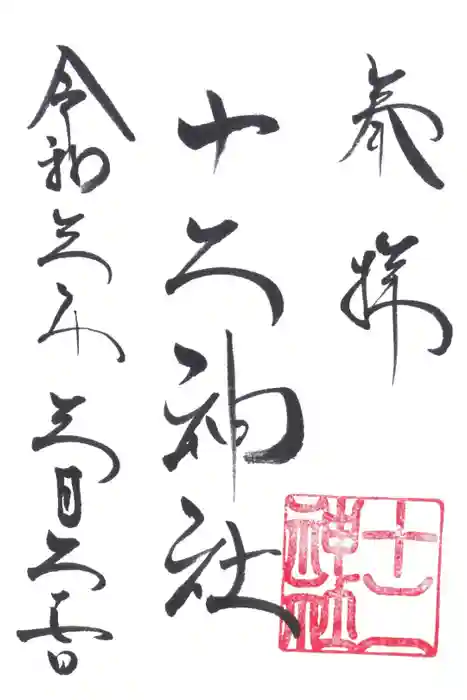 奉拝
十二神社
令和三年三月二十七日
十二
神社